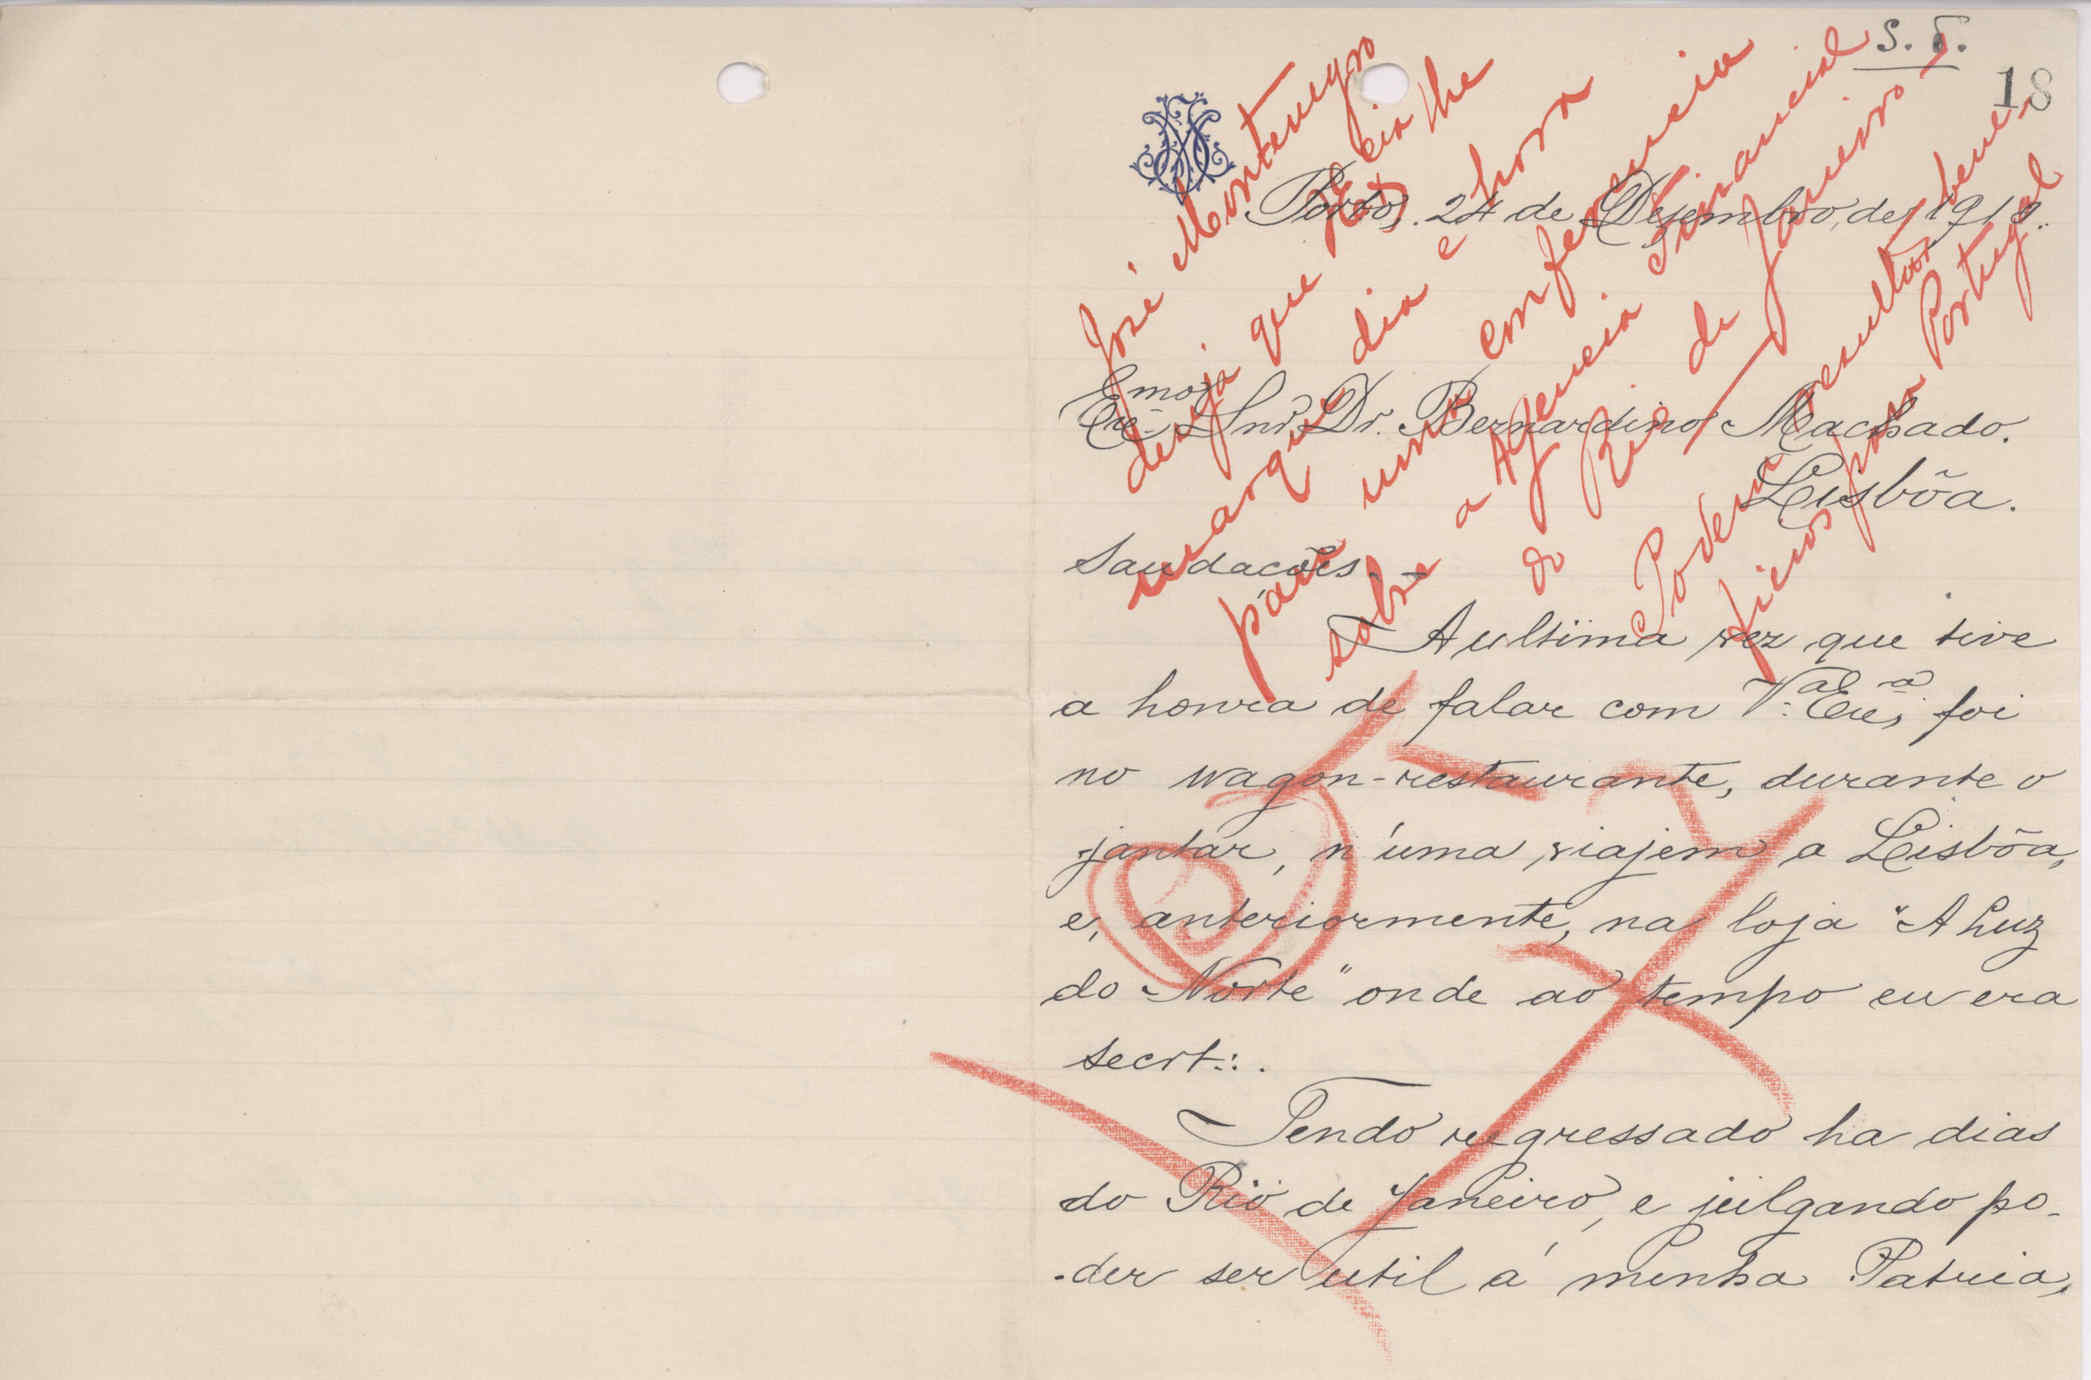 S. T.
18
Porto, 24 de Dezembro, de 1910.
Exmo Snr. Dr. Bernardino Machado.
Lisbôa.
Saudacões. -
A ultima vez que tive
a honra de falar com V.a Exa, foi
no wagon-restaurante, durante o
jantar, n'uma viajem a Lisbôa,
e, anteriormente, na loja "A Luz
do Norte" onde ao tempo eu era
secrt∴.
Tendo regressado ha dias
do Rio de Janeiro, e julgando po-
-der ser util á minha Patria,
José Montenegro
deseja que V. Excia lhe
marque dia e hora
para uma conferencia
sobre a Agencia Financial
do Rio de Janeiro -
Podem resultar bene-
ficios para Portugal